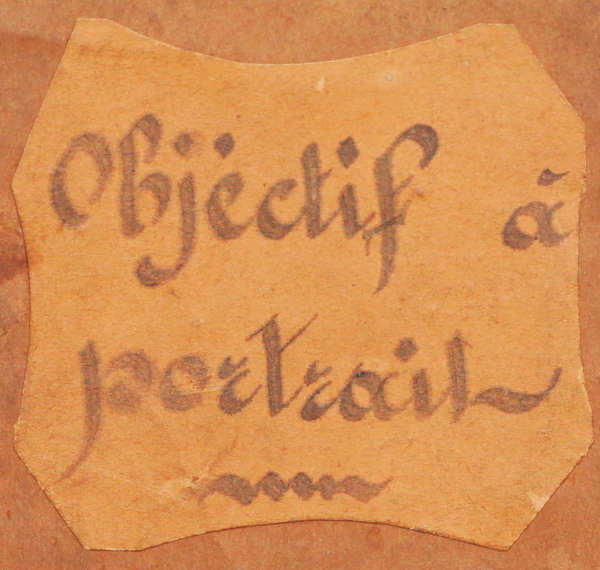 Objectif à
portrait